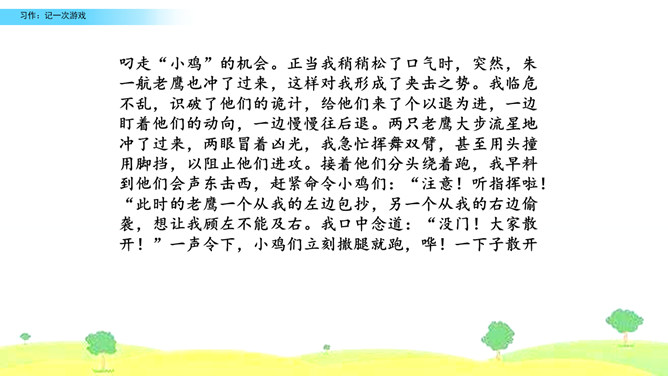 习作：记一次游戏
叼走“小鸡”的机会。正当我稍稍松了口气时，突然，朱
一航老鹰也冲了过来，这样对我形成了夹击之势。我临危
不乱，识破了他们的诡计，给他们来了个以退为进，一边
盯着他们的动向，一边慢慢往后退。两只老鹰大步流星地
冲了过来，两眼冒着凶光，我急忙挥舞双臂，甚至用头撞
用脚挡，以阻止他们进攻。接着他们分头绕着跑，我早料
到他们会声东击西，赶紧命令小鸡们：“注意！听指挥啦！
“此时的老鹰一个从我的左边包抄，另一个从我的右边偷
袭，想让我顾左不能及右。我口中念道：“没门！大家散
开！”一声令下，小鸡们立刻撒腿就跑，哗！一下子散开